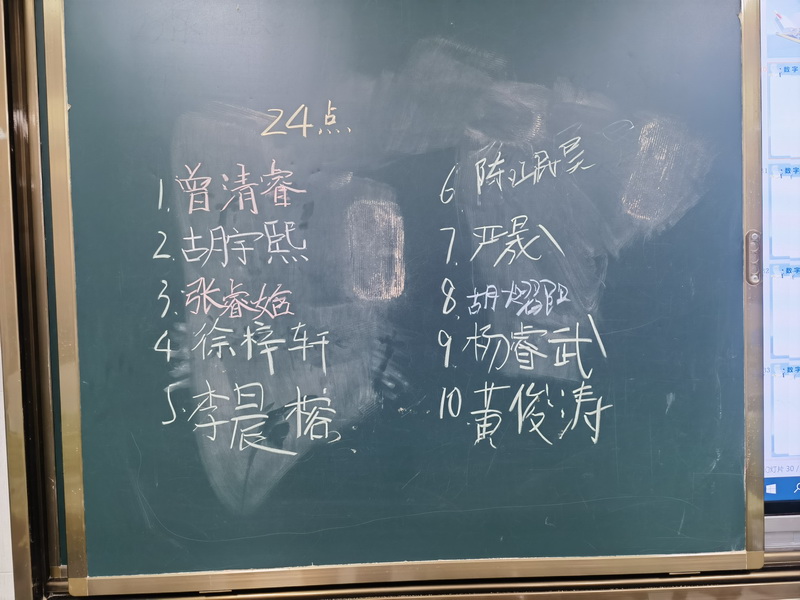 24点
1.曾清睿
2.胡宇熙
3.张睿
4 徐梓轩
5.李晨榕
6 陈
7.严晟
8.胡
9.杨睿武
10 黄俊涛
数字
数字
数字
数字
30 /